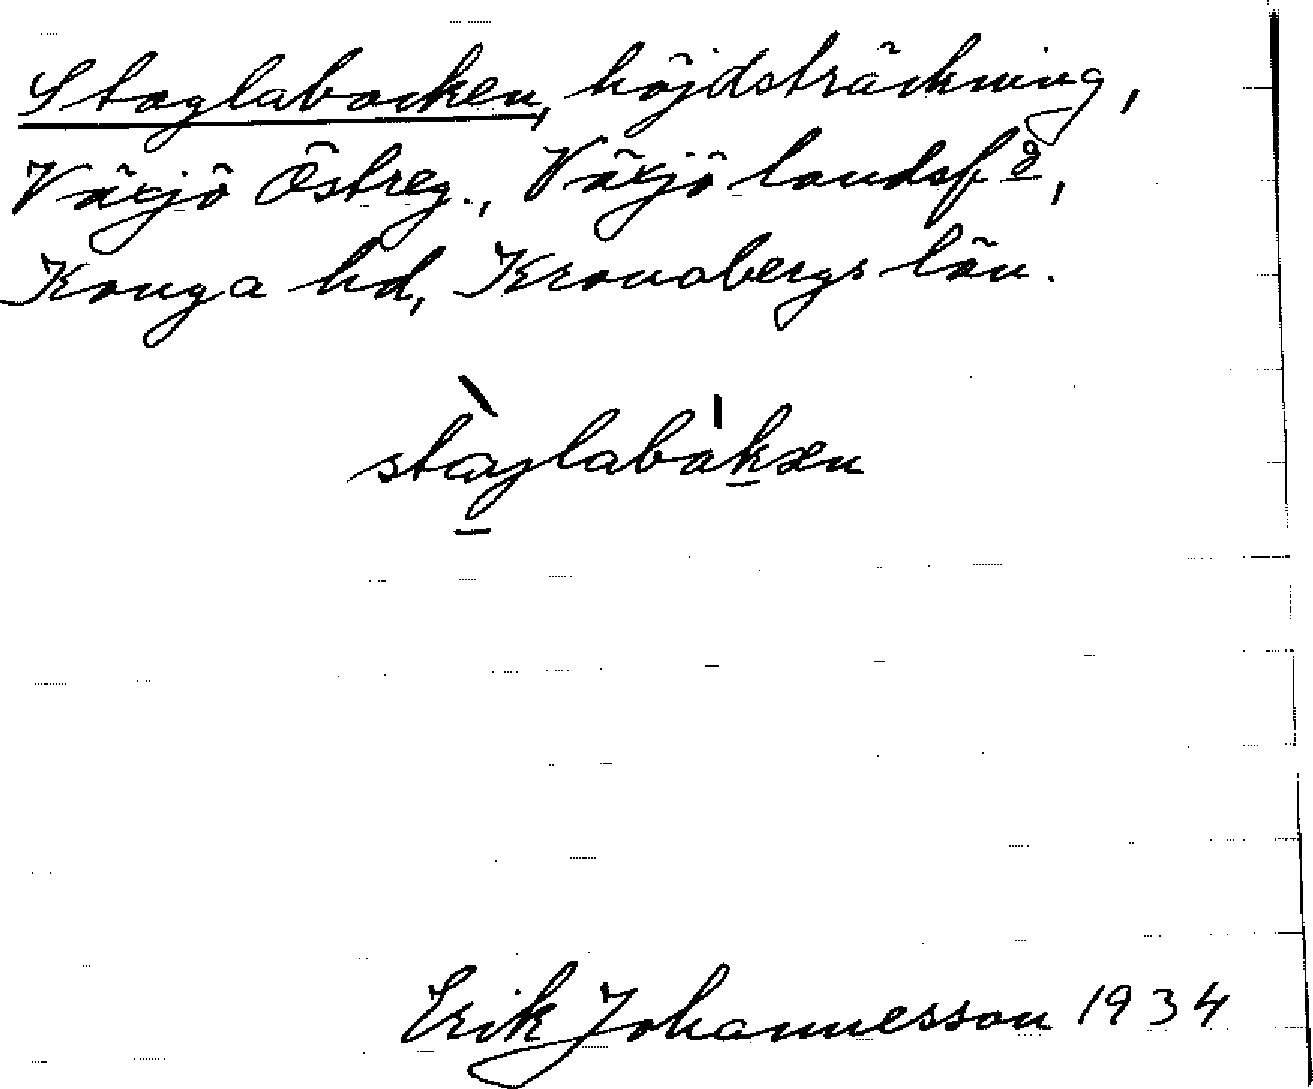 Staglabacken, höjdsträckning,
Växjö Östreg., Växjö landsf ö,
Konga hd, Kronobergs län.
staglabakæn
Erik Johannesson 1934